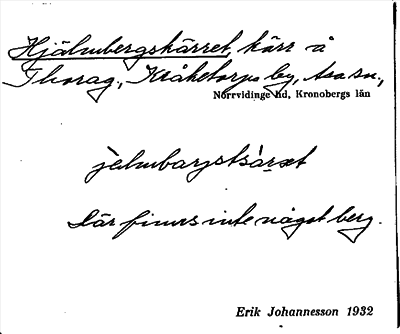 Hjälmbergskärret, kärr å
Thorag., Kråketorps by, Asa sn.,
Norrvidinge hd, Kronobergs län
jälmbarjstsäret
Där finns inte något berg.
Erik Johannesson 1932